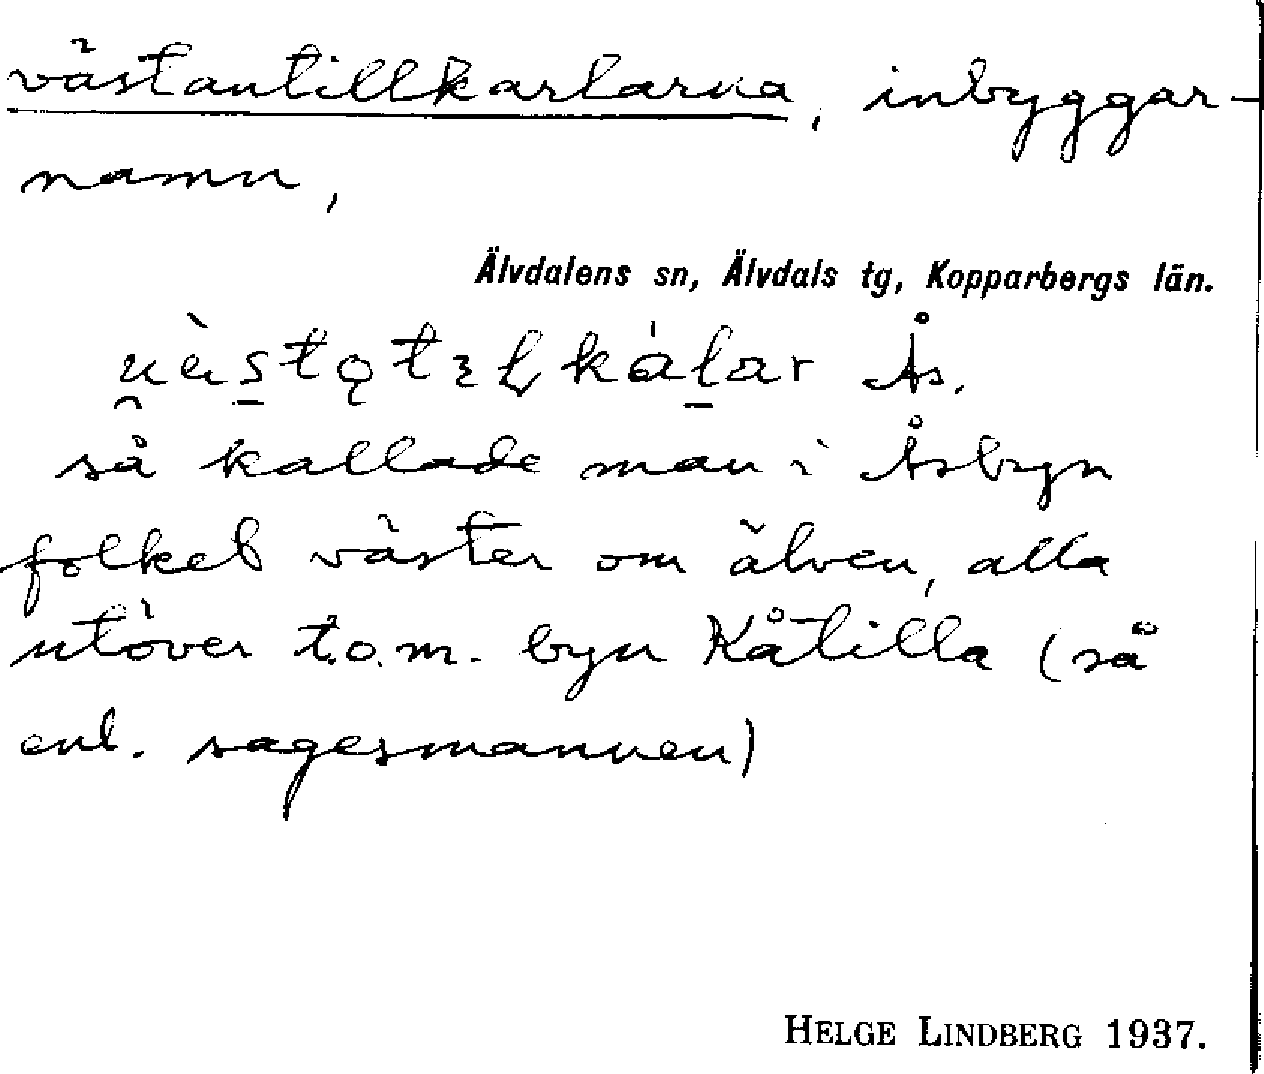 västantillkarlarna, inbyggar-
namn,
Älvdalens sn, Älvdals tg, Kopparbergs län.
Ås.
så kallade man i Åsbyn
folket väster om älven, alla
utöver t.o.m. byn Kåtilla (så
enl. sagesmannen)
HELGE LINDBERG 1937.